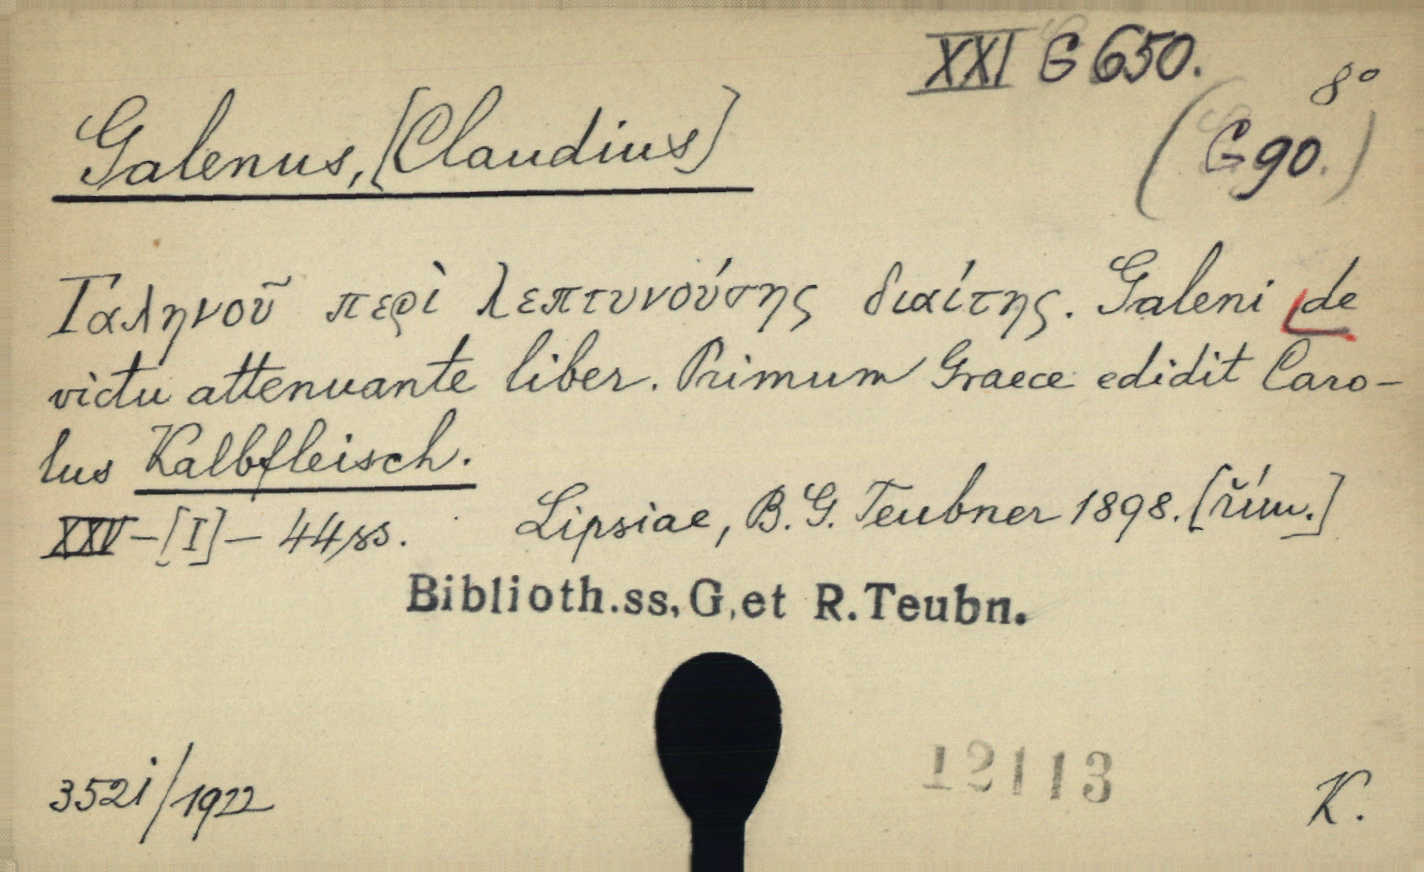 XXI G 650.
8°
Galenus, [Claudius]
(G 90.)
Γαληνοῦ περὶ λεπτυνούσης διαίτης. Galeni de
victu attenuante liber. Primum Graece edidit Caro-
lus Kalbfleisch.
XXV-[I]-44 ss. Lipsiae, B. G. Teubner 1898. [řím.]
Biblioth.ss,G,et R.Teubn.
352i/1922
12113
K.